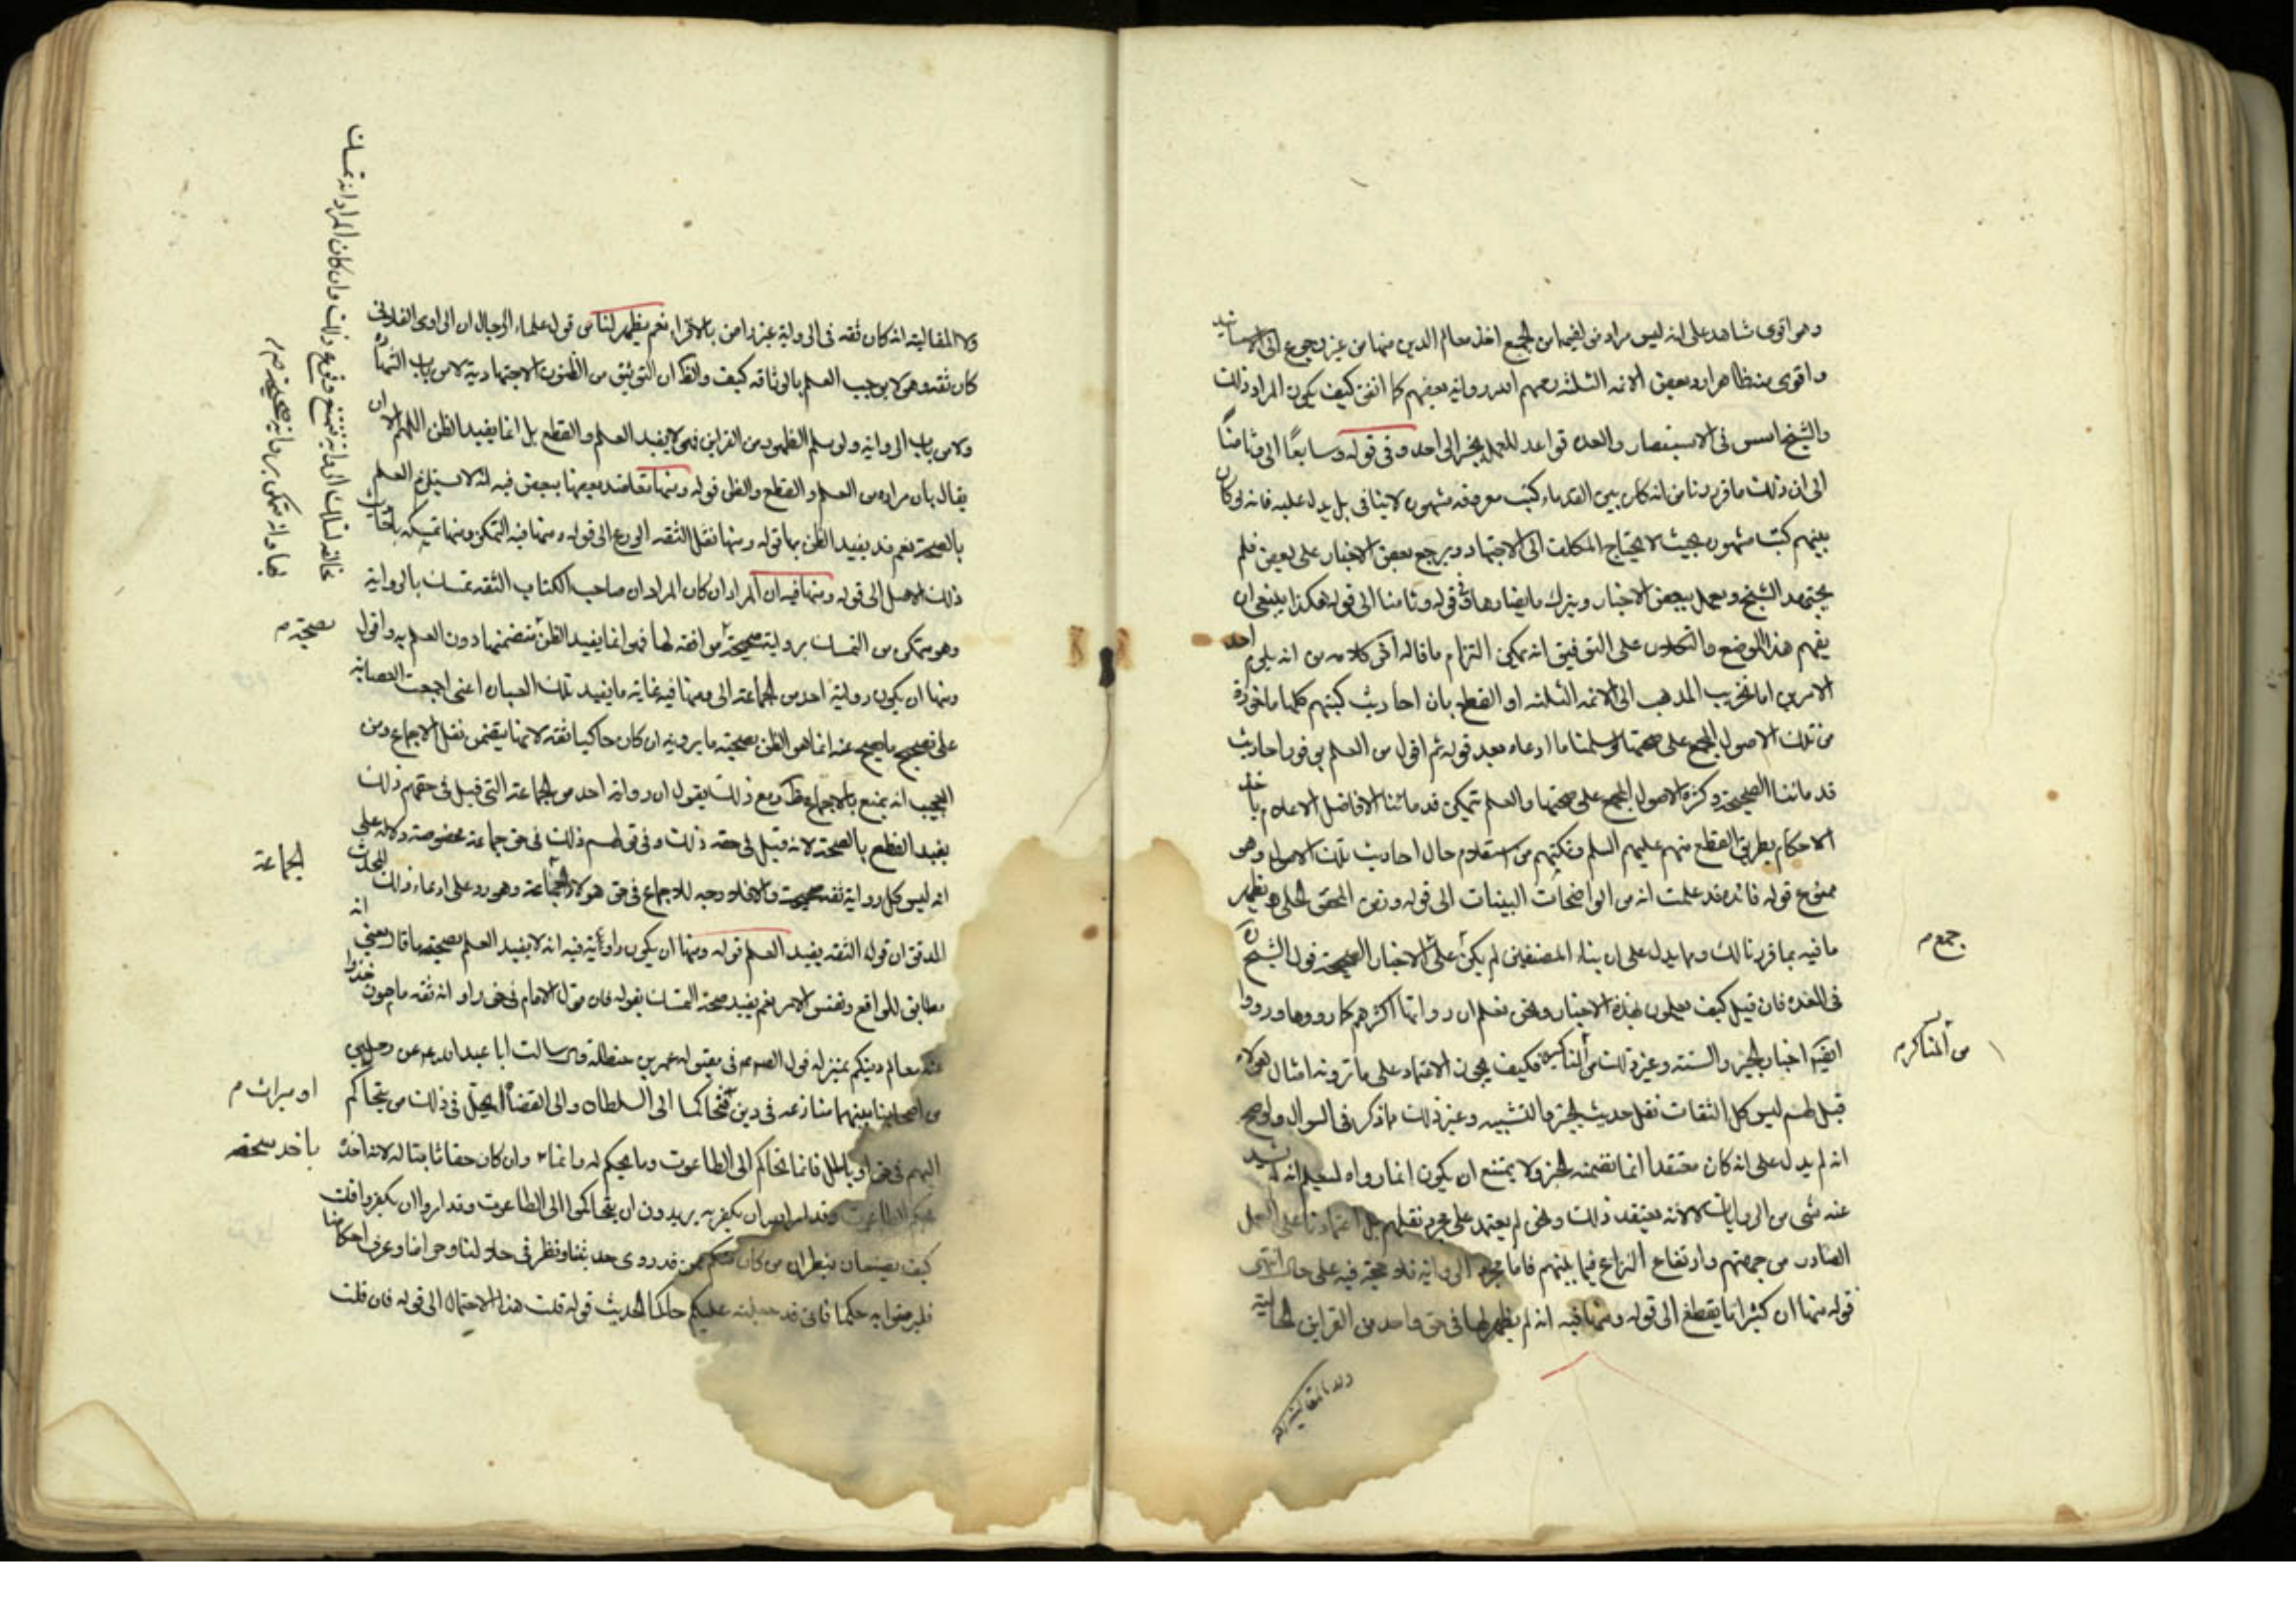 وهو اقوى شاهد على انه ليس مراد من لفيها من الجمع اخذ معالم الدين منها من غير رجوع الى الاسانيد
واقوى منه ظاهرا رد بعض الائمة الثلثة رحمهم الله رواية بعضهم كما اتفق كيف يكون المراد ذلك
والشيخ اسس في الاستبصار والعده قواعد للعمل بخبر الواحد وفي قوله وسابعًا الى وثامنًا
الى ان ذلك ما قررنا من انه كان بين القدماء كتب معروفه مشهوره لا ينافي بل يدل عليه فانه لو كان
بينهم كتب مشهوره بحيث لا يحتاج المكلف الى الاجتهاد ويرجع بعض الاخبار على بعض فلم
يجتهد الشيخ ويعمل ببعض الاخبار ويترك ما يضادها وفي قوله وثامنا الى قوله هكذا ينبغي ان
يفهم هذا الموضع والتكلان على التوفيق انه يمكن التزام ما قاله آخر كلامه من انه يلزم احد
الامرين اما تخريب المذهب الى الائمة الثلثه او القطع بان احاديث كتبهم كلها ماخوذة
من تلك الاصول المجمع على صحتها ولو سلمنا ما ادعاه بعد قوله ثم اقول من العلم بوفور احاديث
قدمائنا الصحيحة وكثرة الاصول المجمع على صحتها والعلم بتمكن قدمائنا الافاضل الاعلام باخذ
الاحكام بطريق القطع منهم عليهم السلم وتمكنهم من استعلام حال احاديث تلك الاصول وهو
ممنوع قوله فائده قد علمت انه من الواضحات البينات الى قوله ونص المحقق الحلي هو يظهر
ما فيه بما قررنا لك وما يدل على ان بناء المصنفين لم يكن على الاخبار الصحيحة قول الشيخ ره
في العده فان قيل كيف يعملون بهذه الاخبار ونحن نعلم ان رواتها اكثرهم كما رووها ورووا
ايضًا اخبار الجبر والستة وغير ذلك من المناكير فكيف يجوز الاعتماد على ما ترويه امثال هؤلاء
قيل لهم ليس كل الثقات نقل حديث الجبر والتشبيه وغير ذلك مما ذكر في السوال ولو صح
انه لم يدل على انه كان معتقدا انما تضمنه الخبر ولا يمتنع ان يكون انما رواه ليعلم انه لم يشذ
عنه شي من الروايات لا لانه يعتقد ذلك ونحن لم نعتمد على مجرد نقلهم بل اعتمادنا على العمل
الصادر من جهتهم وارتفاع النزاع فيما بينهم فاما مجرد الرواية فلا حجة فيه على حال انتهى
قوله منها ان كثيرا ما يقطع الى قوله ومنها فيه انه لم يظهر لنا في حق واحد من القراين الحالية
جمع م
من المناكير م
ولا المقالية انه
ولا المقالية انه كان ثقه في الرواية غير واحد من بالافتراء نعم يظهر لنا من قول علماء الرجال ان الراوي الفلاني
كان ثقه وهو لا يوجب العلم بالوثاقه كيف والظاهر ان التوثيق من الظنون الاجتهادية لا من باب الشهاده
ولا من باب الرواية ولو سلم الظهور من القراين فهو لا يفيد العلم والقطع بل انما يفيد الظن اللهم الا ان
يقال بان مراده من العلم والقطع والظن قوله ومنها تعاضد بعضها ببعض فيه انه لا يستلزم العلم
بالصحة نعم قد يفيد الظن بها قوله ومنها نقل الثقه الورع الى قوله ومنها فيه التمكن ومنها تمسكه باحاديث
ذلك الاصل الى قوله ومنها فيه ان المراد ان كان المراد ان صاحب الكتاب الثقه تمسك بالرواية
وهو متمكن من التمسك برواية صحيحة موافقة لها فهو انما يفيد الظن بتضمنها دون العلم به واقول
ومنها ان يكون رواية احد من الجماعة الى ومنها فيه غاية ما يفيد تلك العباره اعني اجمعت العصابة
على تصحيح ما يصح عنه انما هو الظن بصحيته ما يرويه ان كان حاكيا ثقه لانها يتضمن نقل الاجماع ومن
العجب انه يمنع بالاجماع ظاهرا ومع ذلك يقول ان رواية احد من الجماعة التي قيل في حقهم ذلك
يفيد القطع بالصحة لانه قيل في حقه ذلك وفي قولهم ذلك في حق جماعة مخصوصة دلالة على
انه ليس كل رواية ثقه صحيحة والا فلا وجه للاجماع في حق هولاء الجماعة وهو رد على ادعاء ذلك المحدث
المدقق ان قول الثقه يفيد العلم قوله ومنها ان يكون راويه فيه انه لا يفيد العلم بصحيته ما قال يعني انه
مطابق للواقع ونفس الامر نعم يفيد صحة التمسك بقوله فان قول الامام في حق راو انه ثقه مامون خذوا
عنه معالم دينكم بمنزله قول الصادق ع في مقبوله عمر بن حنظلة قال سالت ابا عبد الله ع عن رجلين
من اصحابنا بينهما منازعه في دين فتحاكما الى السلطان والى القضاة ايحل في ذلك من تحاكم
اليهم في حق او باطل فانما تحاكم الى الطاغوت وما يحكم له وانما وان كان حقا ثابتا له لانه اخذه
بحكم الطاغوت وقد امر الله ان يكفر به يريدون ان يتحاكموا الى الطاغوت وقد امروا ان يكفروا قلت
كيف يصنعان ينظران من كان منكم ممن قد روى حديثنا ونظر في حلالنا وحرامنا وعرف احكامنا
فليرضوا به حكما فاني قد جعلته عليكم حاكما الحديث قوله قلت هذا الاحتمال الى قوله فان قلت
بصحيته م
الجماعة
او ميراث م
ياخذ سحته